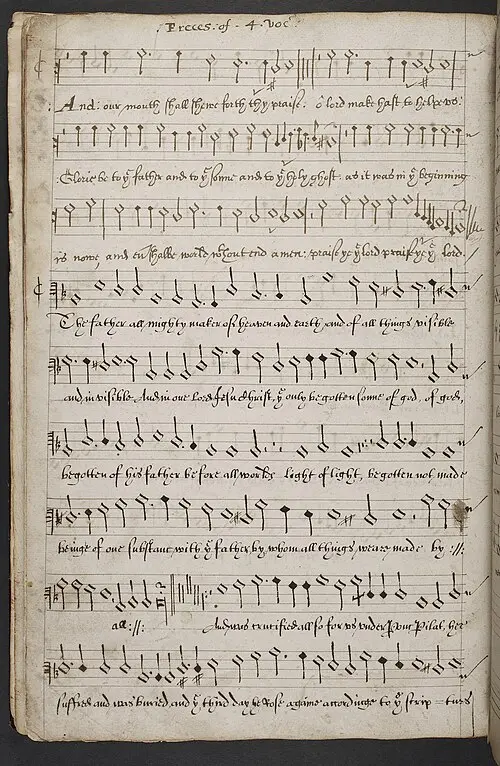 Preces of 4 voc
And: our mouth shall shewe forth thy praise. ô lord make hast to helpe us:
Glorie be to yͤ father and to yͤ sonne and to yͤ holy ghost. as it was in yͤ beginning
is nowe, and ev shalbe world wᵗʰout end amen: praise ye yͤ lord praise ye yͤ lord.
The father all mighty maker of heaven and earth, and of all things visible
and in visible And in one Lord Jesu Christ, yͤ only begotten sonne of god, of god,
begotten of his father before all worlds light of light, begotten not made
beinge of one substanc, with yͤ father, by whom all things weare made by ://:
all ://: And was crucified all so for us under Pilat, hee
suffred and was buried, and yͤ third day he rose againe accordinge to yͤ scrip = tures